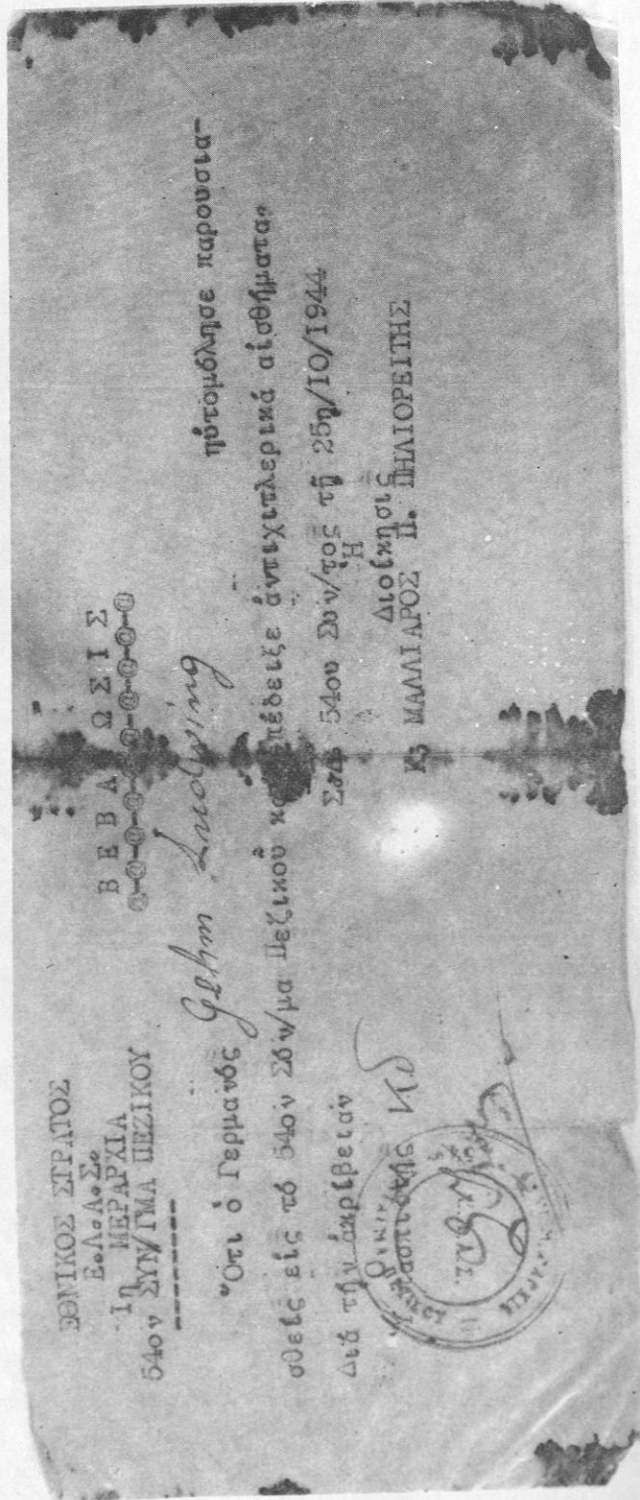 ΕΘΝΙΚΟΣ ΣΤΡΑΤΟΣ
Ε.Λ.Α.Σ.
1η ΜΕΡΑΡΧΙΑ
54ον ΣΥΝ/ΓΜΑ ΠΕΖΙΚΟΥ
--------
Β Ε Β Α Ι Ω Σ Ι Σ
@-@-@-@-@-@-@-@-@-@
Ὅτι ὁ Γερμανός Gehm Ludwing ηὐτομόλησε παρουσια-
σθείς εἰς τό 54ον Σύν/μα Πεζικοῦ καί ἐπέδειξε ἀντιχιτλερικά αἰσθήματα.
Σ.Δ. 54ου Συν/τος τῇ 25η/IO/1944
Διά τήν ἀκρίβειαν
Ἡ Διοίκησις
Ὁ
ΚΣ ΜΑΛΛΙΑΡΟΣ Π. ΠΗΛΙΟΡΕΙΤΗΣ